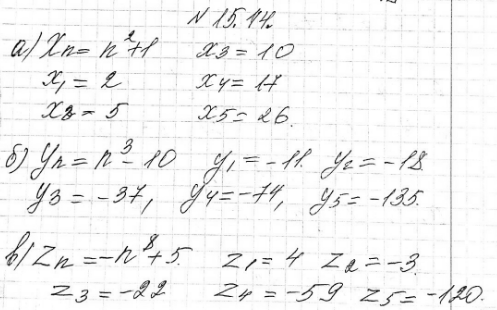 N 15.14.
а) Xn = n²+1 X3 = 10
X1 = 2 X4 = 17
X2 = 5 X5 = 26.
б) Yn = n³ - 10 Y1 = -11. Y2 = -18
Y3 = -37, Y4 = -74, Y5 = -135.
в) Zn = -n⁸+5. Z1 = 4 Z2 = -3.
Z3 = -22 Z4 = -59 Z5 = -120.